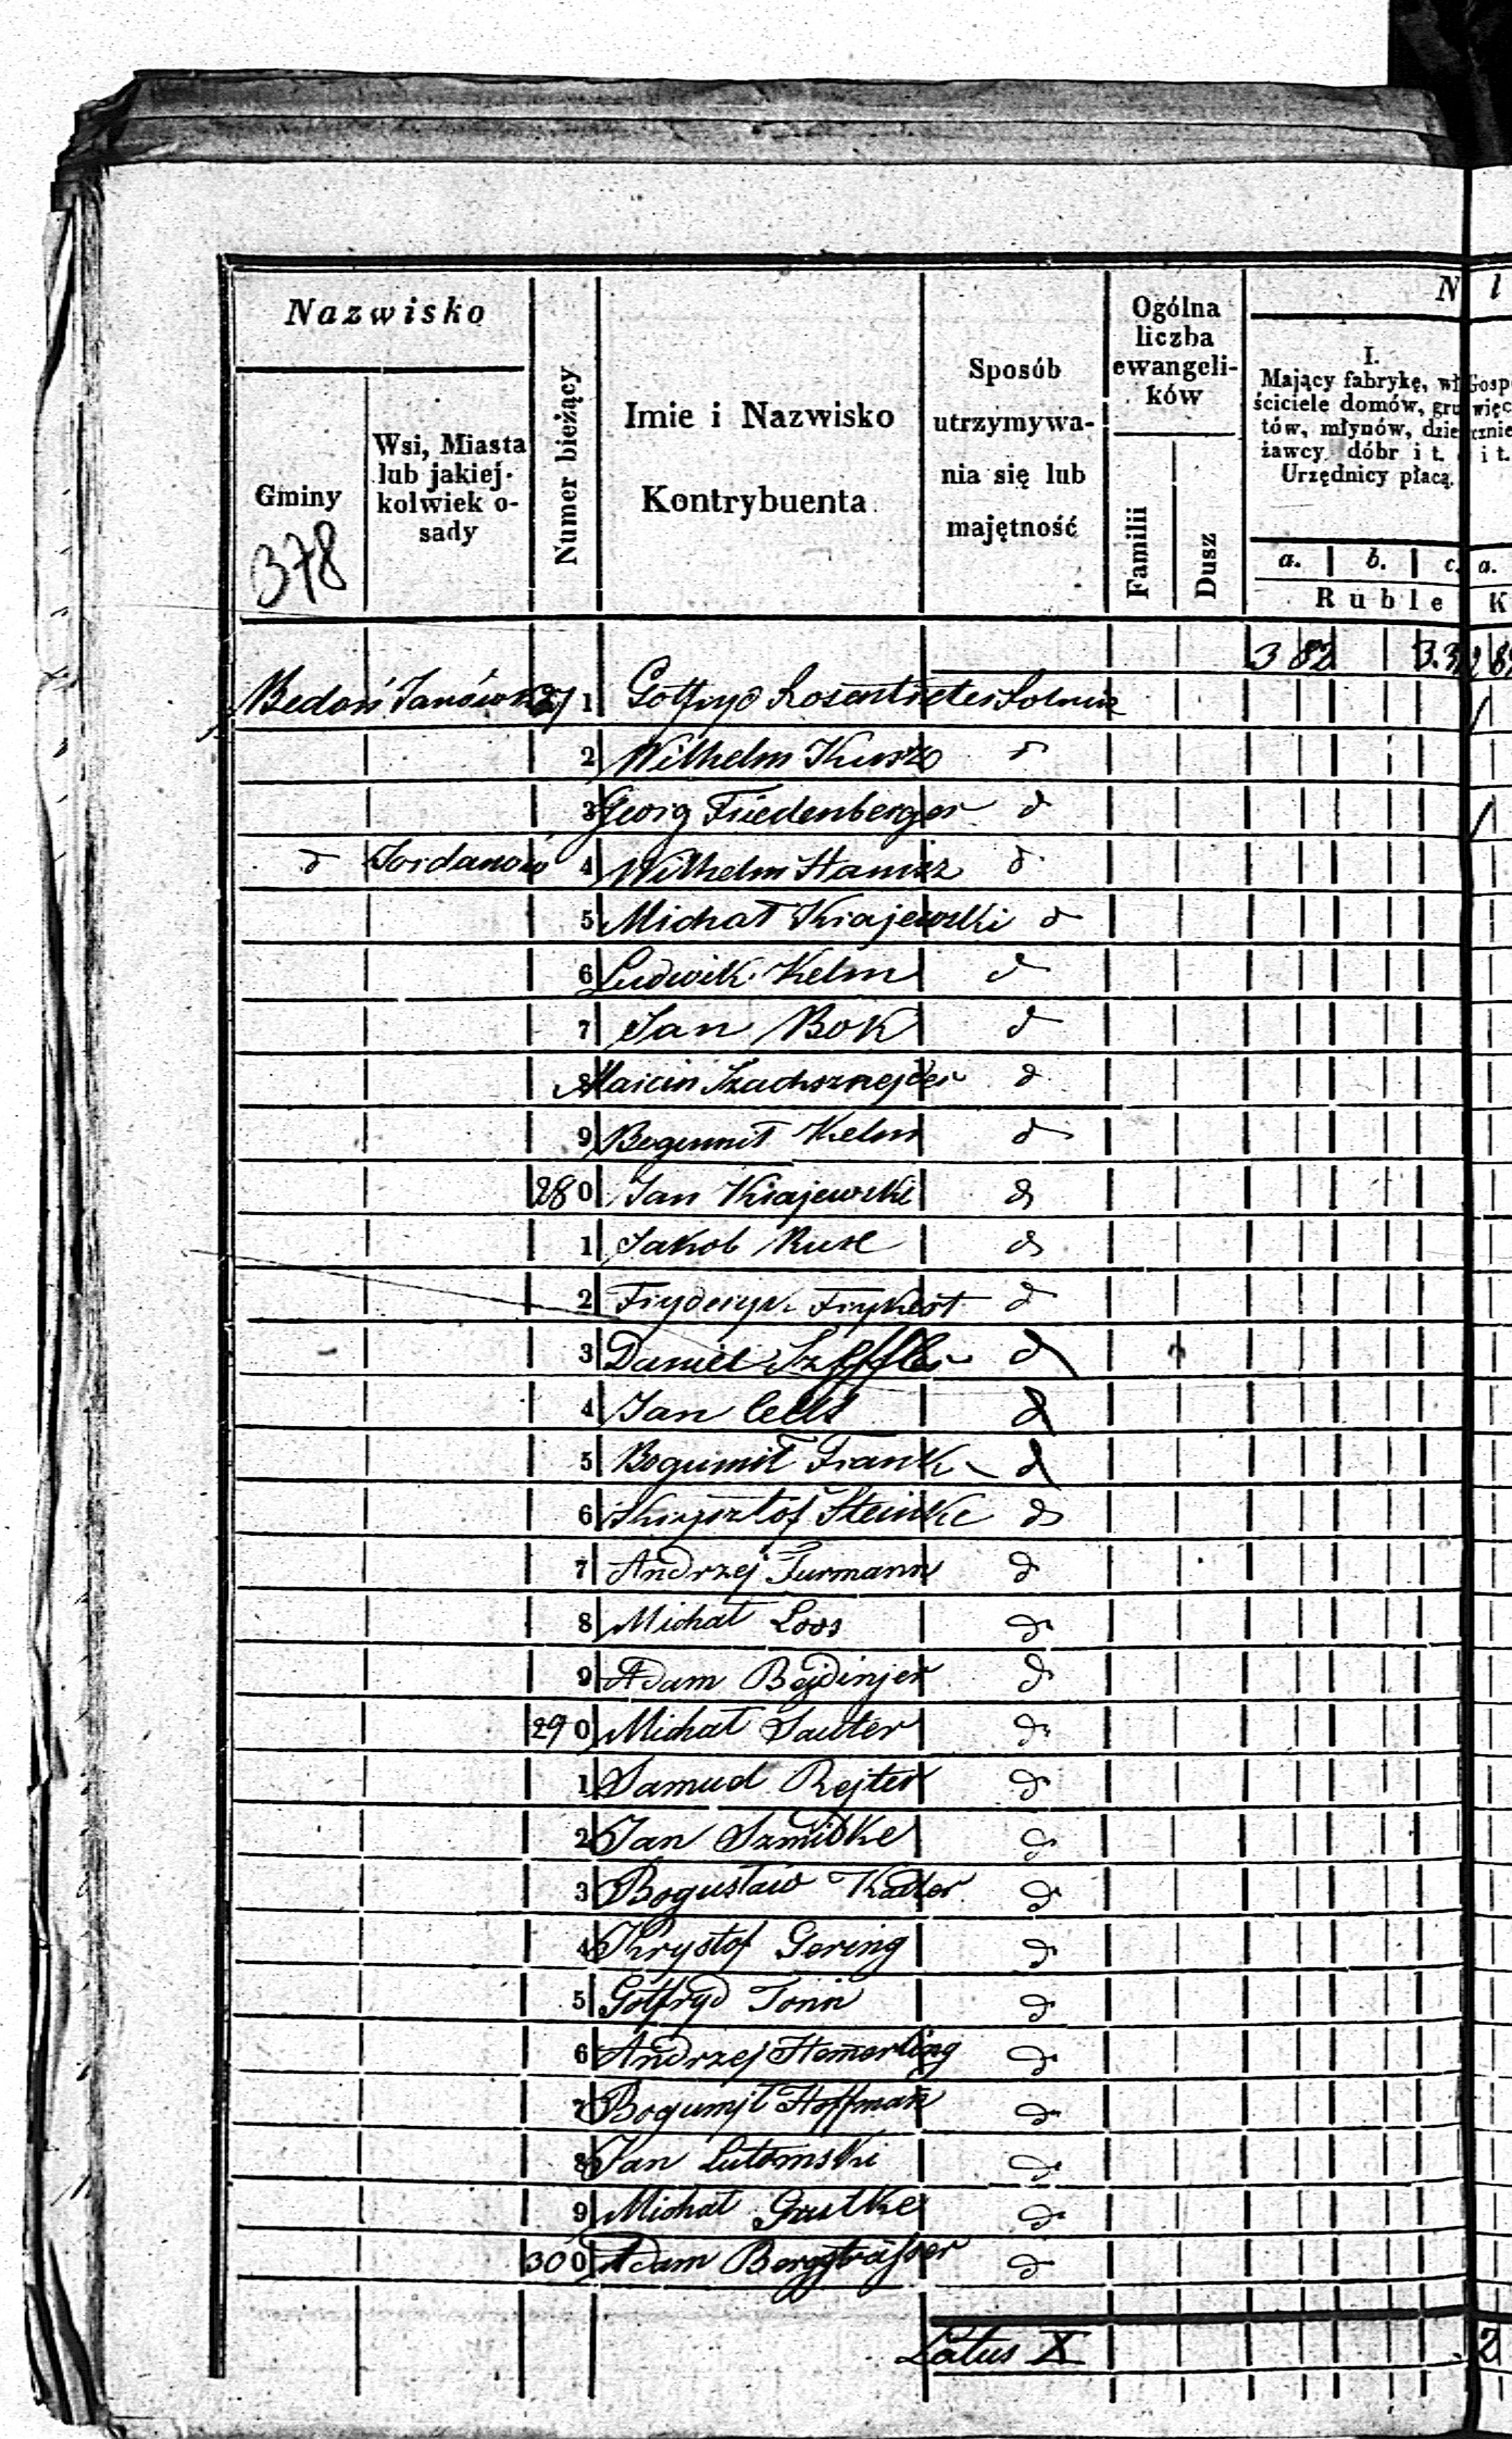 Nazwisko
Gminy
378
Wsi, Miasta
lub jakiej-
kolwiek o-
sady
Numer bieżący
Imie i Nazwisko
Kontrybuenta
Sposób
utrzymywa-
nia się lub
majętność
Ogólna
liczba
ewangeli-
ków
Familii
Dusz
N l
I.
Mający fabrykę, wł
ściciele domów, gru
tów, młynów, dzie
żawcy dóbr i t.
Urzędnicy płacą.
a. b. c.
Ruble
Gosp
więc
cznie
i t.
a.
K
3 82 3.3
Bedoń Janówka 27 1 Gotfryd Rosentreter Rolnik
2 Wilhelm d
3 Georg Friedenberger d
d Jordanów 4 Wilhelm d
5 Michał Krajewski d
6 Ludwik Kelm d
7 Jan Bok d
8 Marcin Szachsznejder d
9 Bogumił Kelm d
28 0 Jan Krajewski d
1 Jakob d
2 Fryderyk d
3 Daniel d
4 Jan d
5 Bogumił Frank d
6 Krzysztof Steinke d
7 Andrzej Furmann d
8 Michał Loos d
9 Adam Bejdinjer d
29 0 Michał Sauter d
1 Samuel Rejter d
2 Jan Szmidke d
3 Bogusław Kadler d
4 Krystof Gering d
5 Gotfryd Tonn d
6 Andrzej Hemerling d
7 Bogumił Hoffman d
8 Jan Lutomski d
9 Michał Gustke d
30 0 Adam Bergsträsser d
Latus X
2